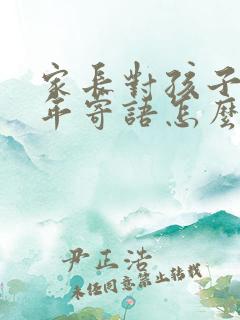 家长對孩子
年寄語怎麼
尹正浩
未经同意禁止转载